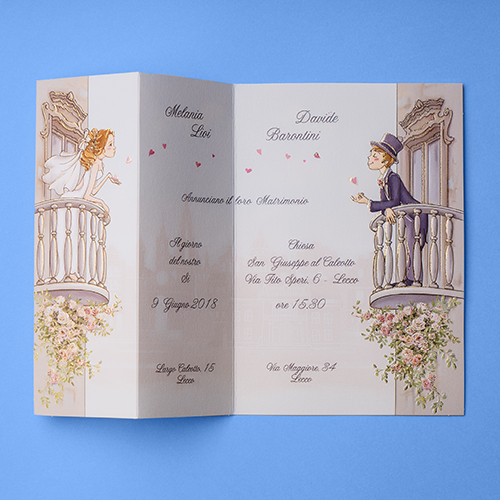 Melania
Livi
Davide
Barontini
Annunciano il loro Matrimonio
Il giorno
del nostro
Sì
9 Giugno 2018
Chiesa
San Giuseppe al Caleotto
Via Tito Speri, 6 - Lecco
ore 15,30
Largo Caleotto, 15
Lecco
Via Maggiore, 34
Lecco